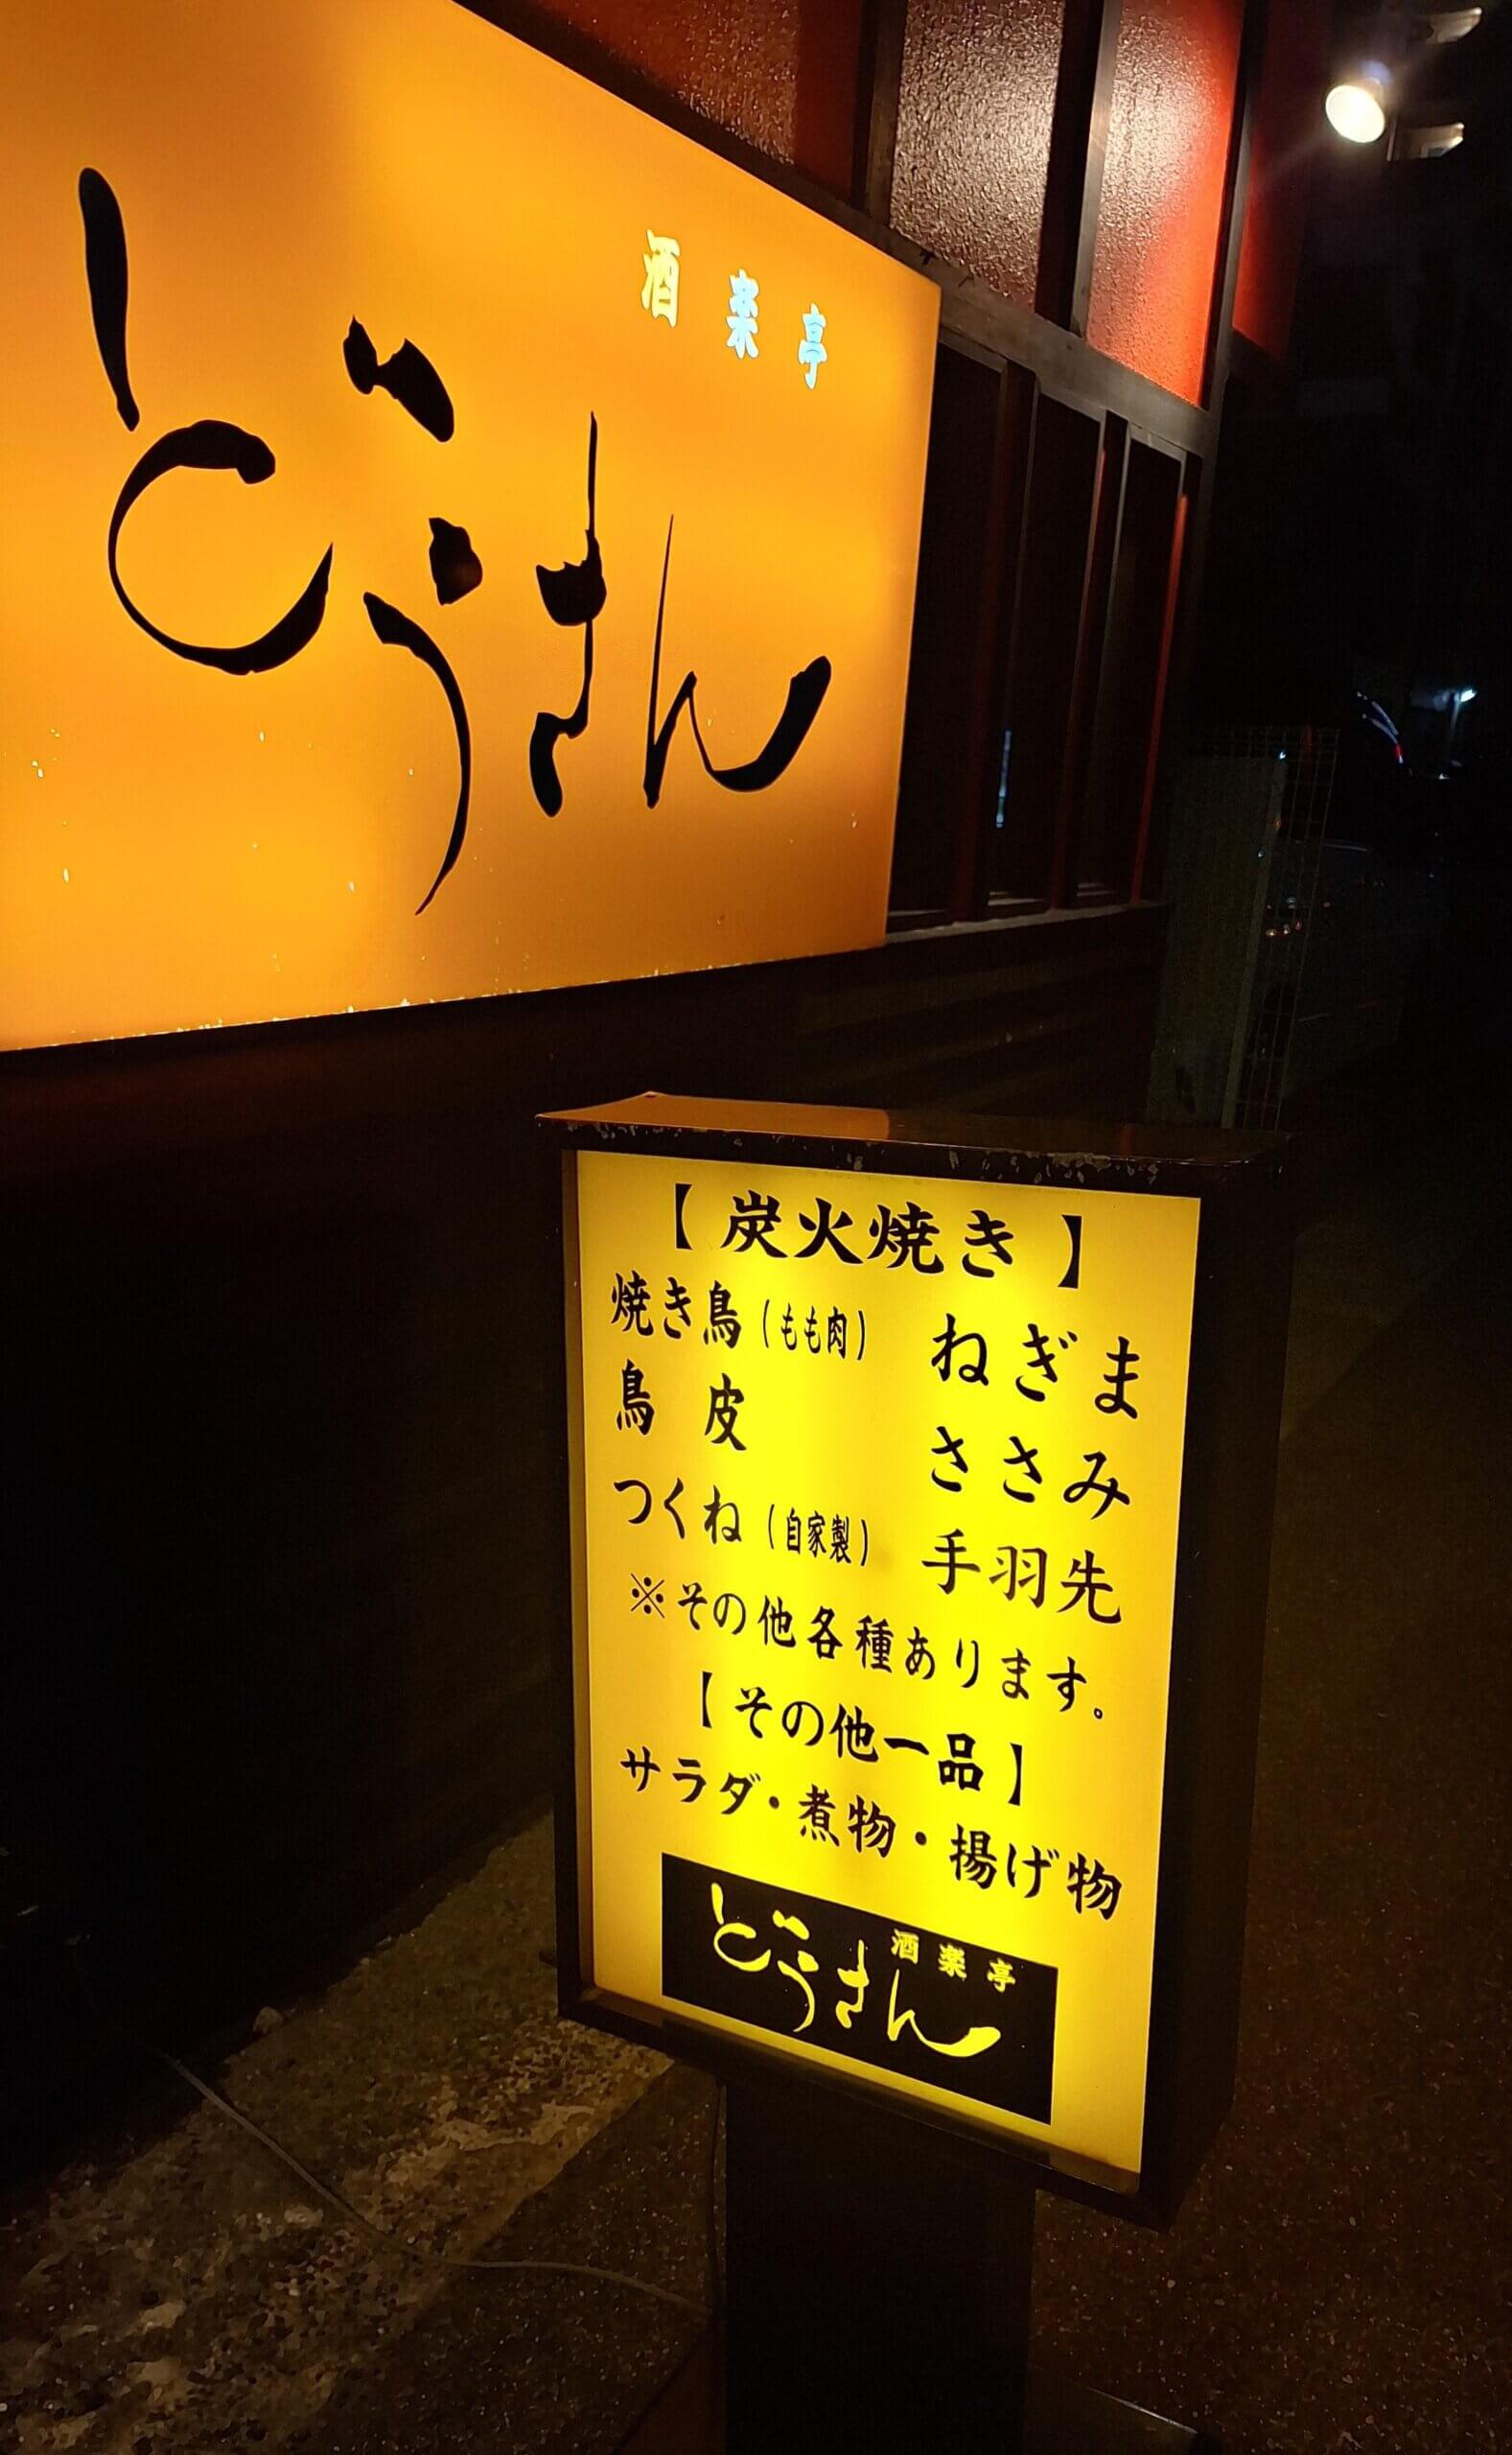 酒楽亭
どうさん
【炭火焼き】
焼き鳥(もも肉) ねぎま
鳥皮 ささみ
つくね(自家製) 手羽先
※その他各種あります。
【その他一品】
サラダ・煮物・揚げ物
酒楽亭
どうさん